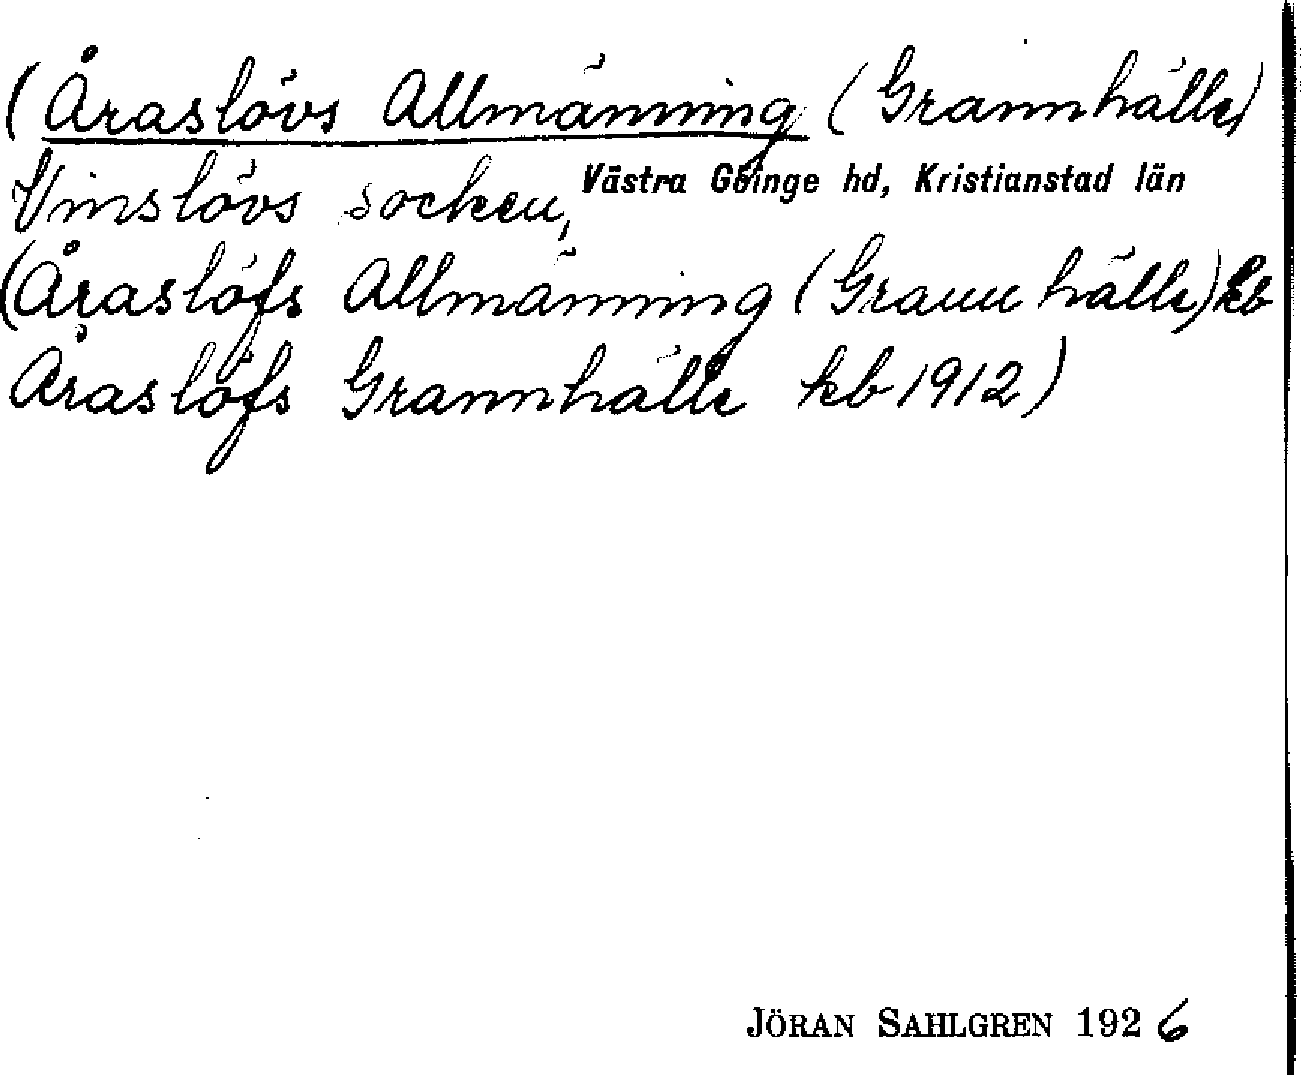 (Åraslövs Allmänning (Grannhälle)
Vinslövs socken, Västra Göinge hd, Kristianstad län
(Åraslöfs Allmänning (Grannhälle) kb
Åraslöfs Grannhälle kb 1912)
JÖRAN SAHLGREN 1926